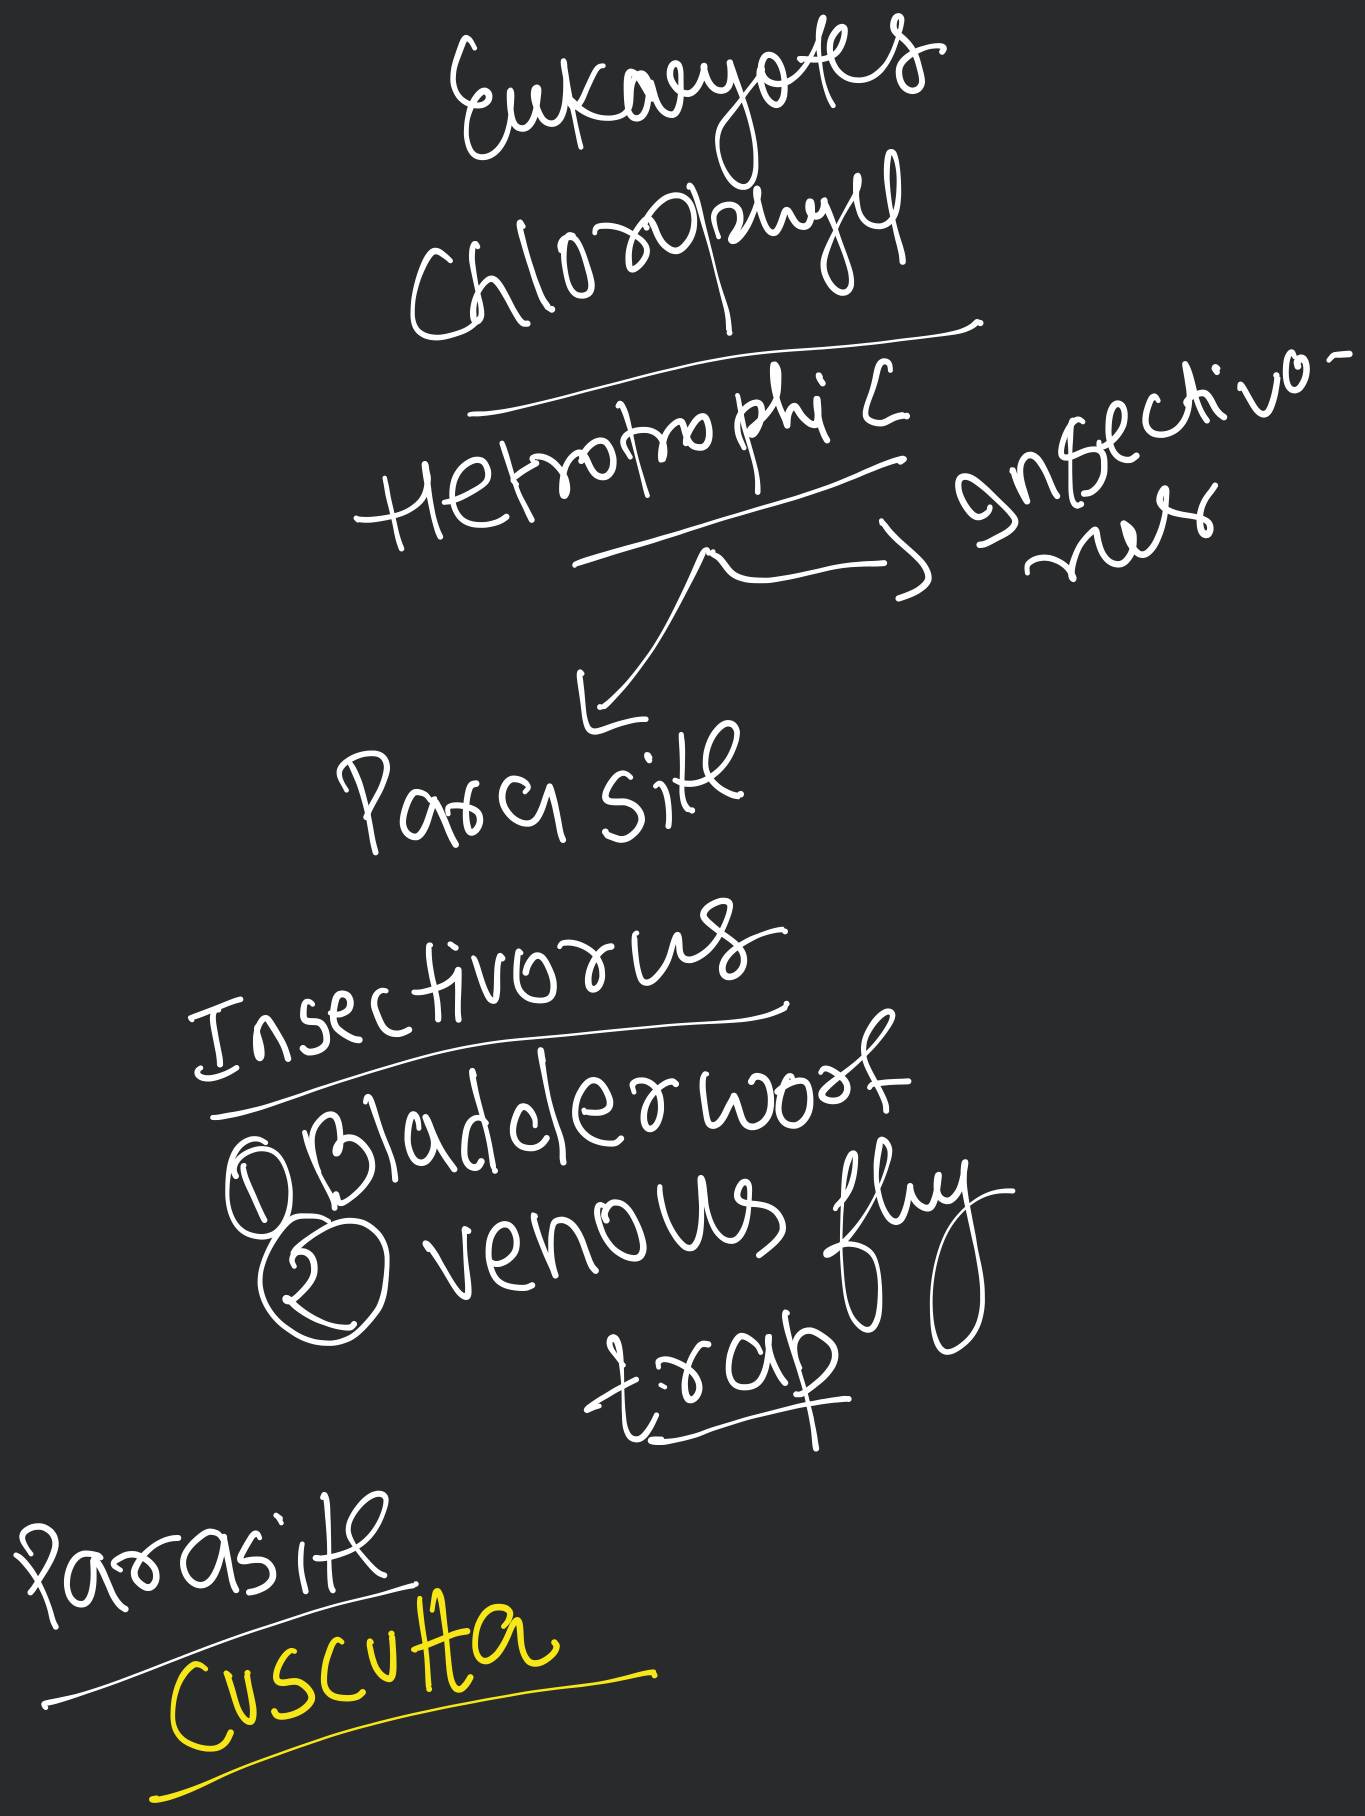 Eukaryotes
Chlorophyll
Hetrotrophic
Insectivo-
rus
Parasite
Insectivorus
① Bladderwort
② venous fly
trap
Parasite
Cuscutta